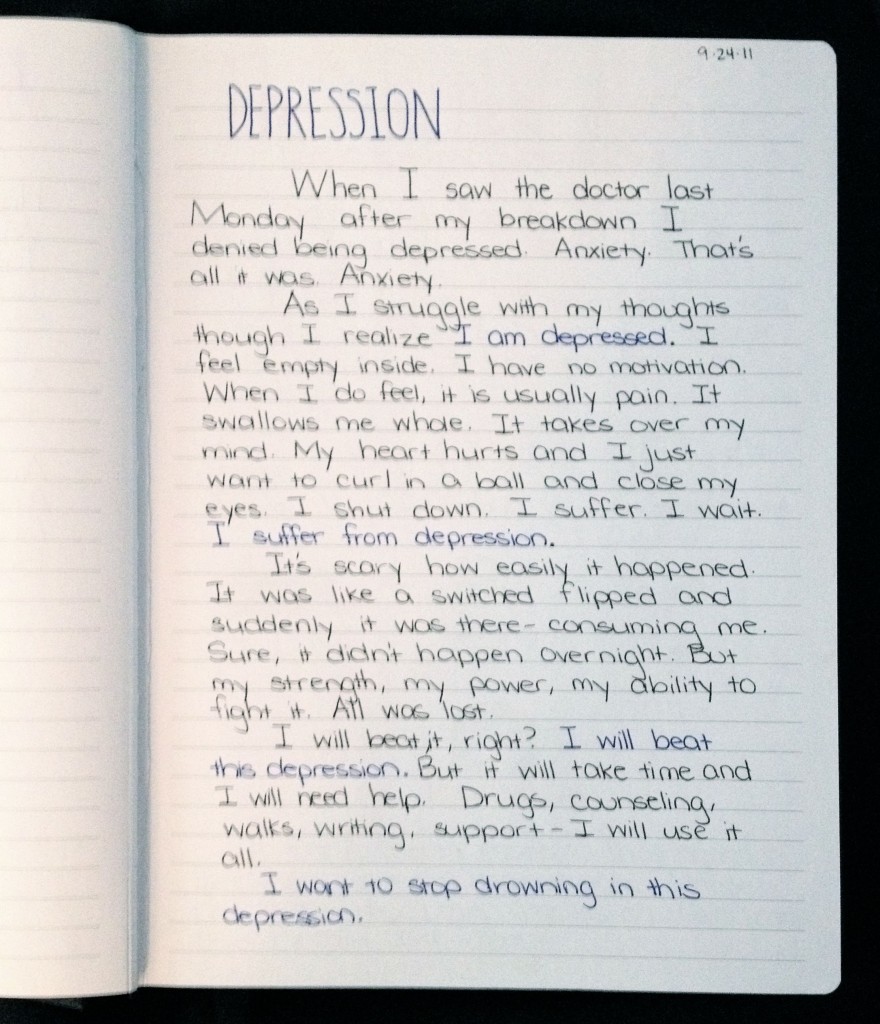 9·24·11
DEPRESSION
When I saw the doctor last
Monday after my breakdown I
denied being depressed. Anxiety. That's
all it was. Anxiety.
As I struggle with my thoughts
though I realize I am depressed. I
feel empty inside. I have no motivation.
When I do feel, it is usually pain. It
swallows me whole. It takes over my
mind. My heart hurts and I just
want to curl in a ball and close my
eyes. I shut down. I suffer. I wait.
I suffer from depression.
It's scary how easily it happened.
It was like a switched flipped and
suddenly it was there- consuming me.
Sure, it didn't happen overnight. But
my strength, my power, my ability to
fight it. All was lost.
I will beat it, right? I will beat
this depression. But it will take time and
I will need help. Drugs, counseling,
walks, writing, support - I will use it
all.
I want to stop drowning in this
depression.